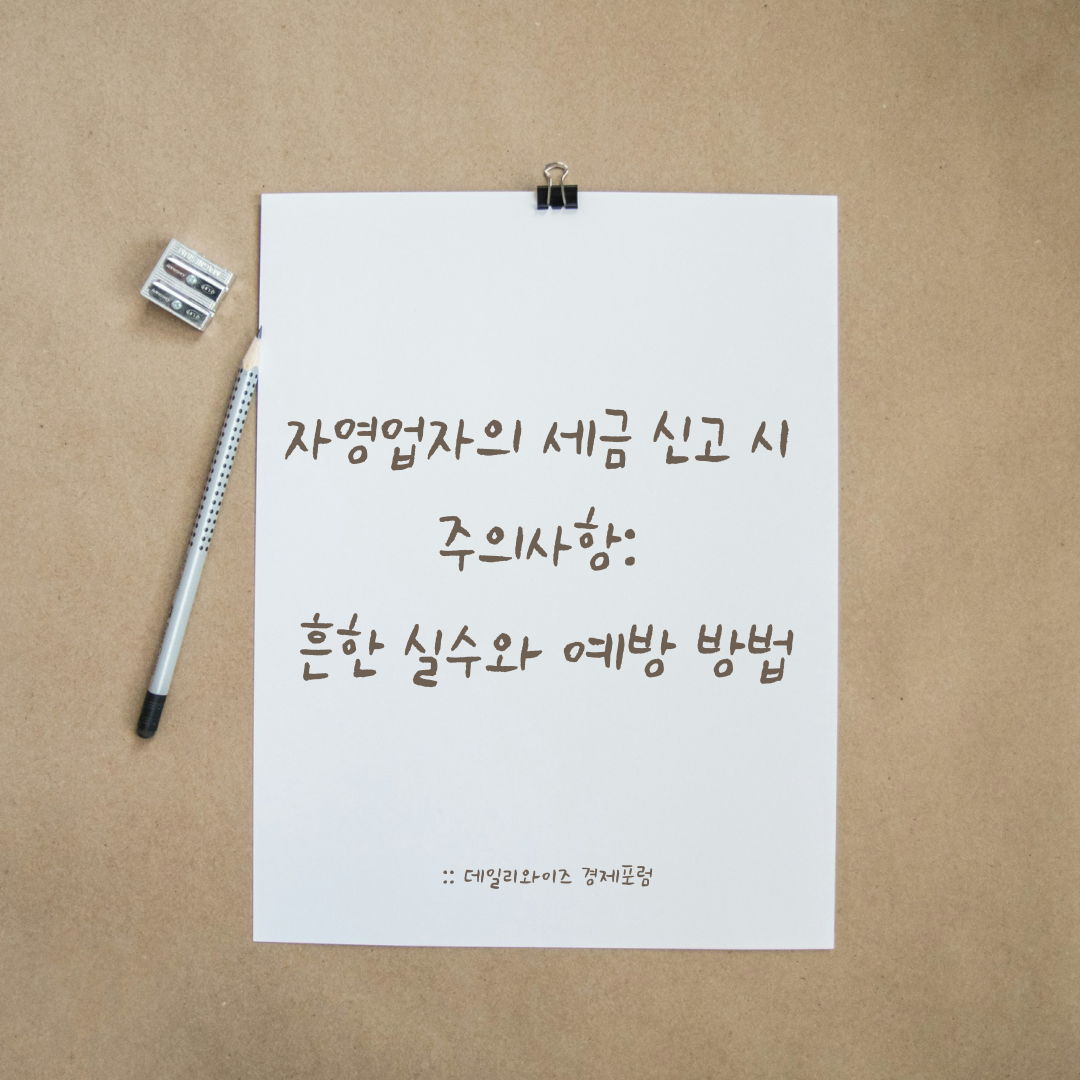 자영업자의 세금 신고 시
주의사항:
흔한 실수와 예방 방법
:: 데일리와이즈 경제포럼